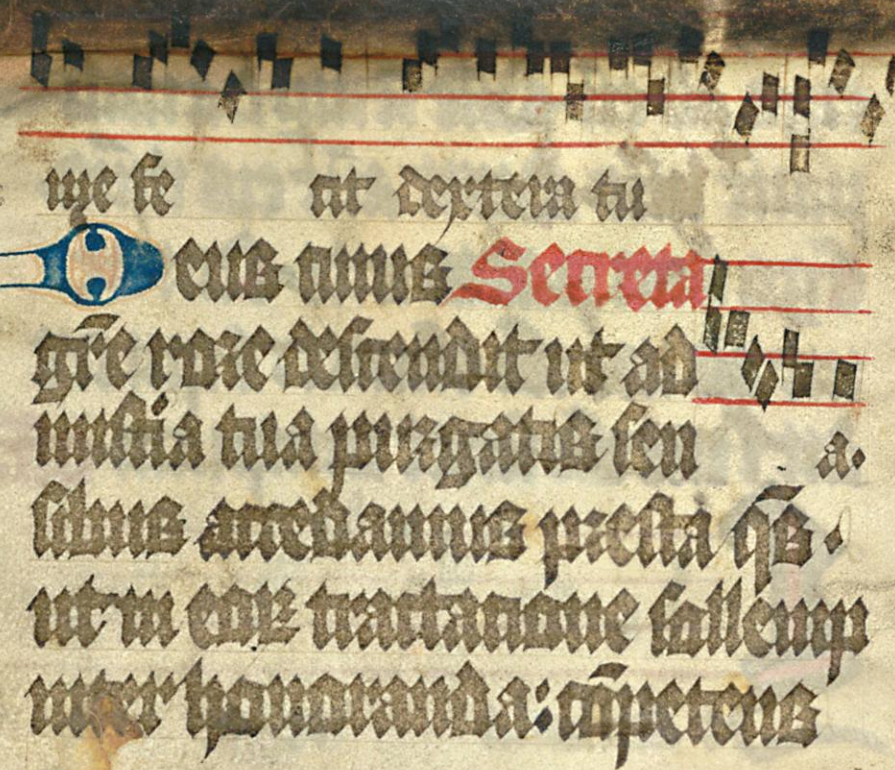 me fe cit dextera tu
Deus cuius Secreta
gr̄e rore descendit ut ad
mistia tua purgatis sen a.
sibus accedamus presta qs̄.
ut in eoꝝ tractatione sollemp
niter honoranda: cōpetens